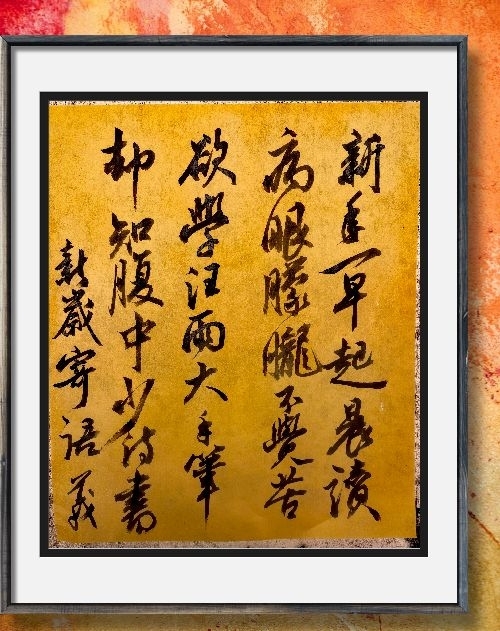 新年一早起晨讀
病眼朦朧不覺苦
欲學汪雨大手筆
却知腹中少詩書
新歲寄語義